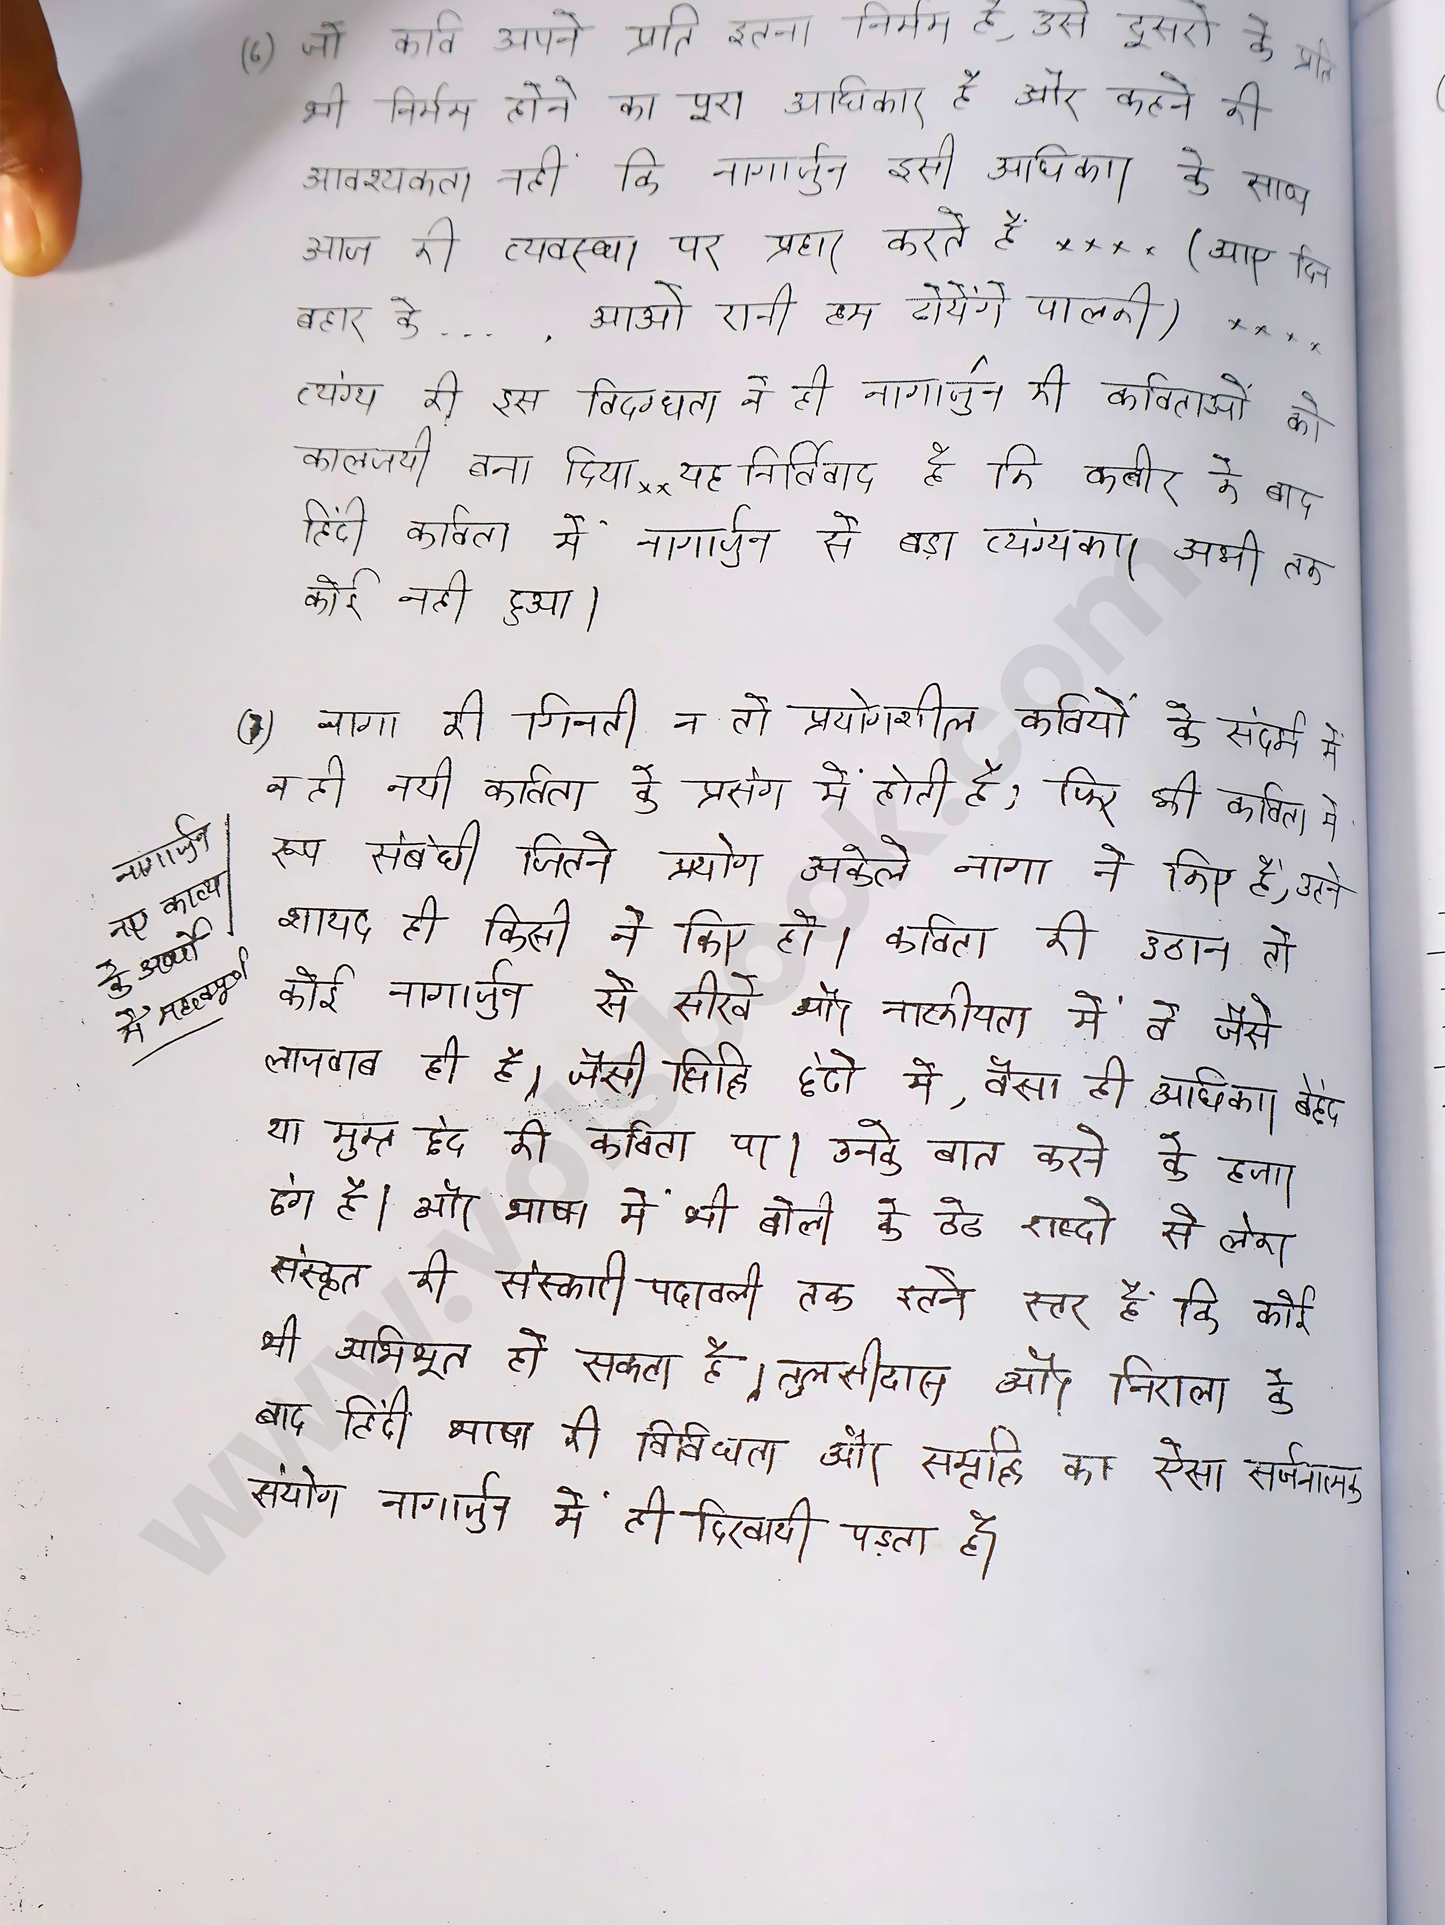 (6) जो कवि अपने प्रति इतना निर्मम है, उसे दूसरो के प्रति
भी निर्मम होने का पूरा अधिकार है और कहने की
आवश्यकता नहीं कि नागार्जुन इसी अधिकार के साथ
आज की व्यवस्था पर प्रहार करते हैं ×××× (आए दिन
बहार के ---- , आओ रानी हम ढोयेंगे पालकी) ××××
व्यंग्य की इस विदग्धता ने ही नागार्जुन की कविताओं को
कालजयी बना दिया ×× यह निर्विवाद है कि कबीर के बाद
हिंदी कविता में नागार्जुन से बड़ा व्यंग्यकार अभी तक
कोई नही हुआ।
(7) नागा की गिनती न तो प्रयोगशील कवियों के संदर्भ में
न ही नयी कविता के प्रसंग में होती है; फिर भी कविता में
रूप संबंधी जितने प्रयोग अकेले नागा ने किए हैं, उतने
शायद ही किसी ने किए हो। कविता की उठान तो
कोई नागार्जुन से सीखे और नाटकीयता में वे जैसे
लाजवाब ही है। जैसी सिद्धि छंदो में, वैसा ही अधिकार बेछंद
या मुक्त छंद की कविता पर। उनके बात करने के हजार
ढंग है। और भाषा में भी बोली के ठेठ शब्दो से लेकर
संस्कृत की संस्कारी पदावली तक इतने स्तर हैं कि कोई
भी अभिभूत हो सकता है। तुलसीदास और निराला के
बाद हिंदी भाषा की विविधता और समृद्धि का ऐसा सर्जनात्मक
संयोग नागार्जुन में ही दिखायी पड़ता है।
नागार्जुन
नए काव्य
के अर्थों
में महत्वपूर्ण
www.volsbook.com